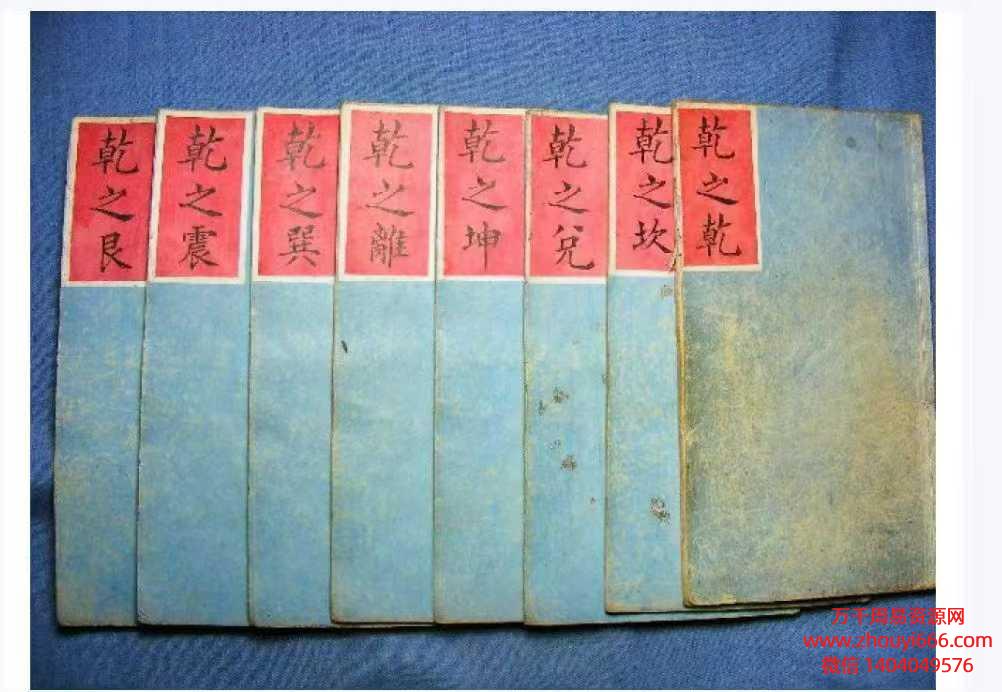 乾之乾
乾之坎
乾之兌
乾之坤
乾之離
乾之巽
乾之震
乾之艮
万千周易资源网
www.zhouyi666.com
微信 1404049576